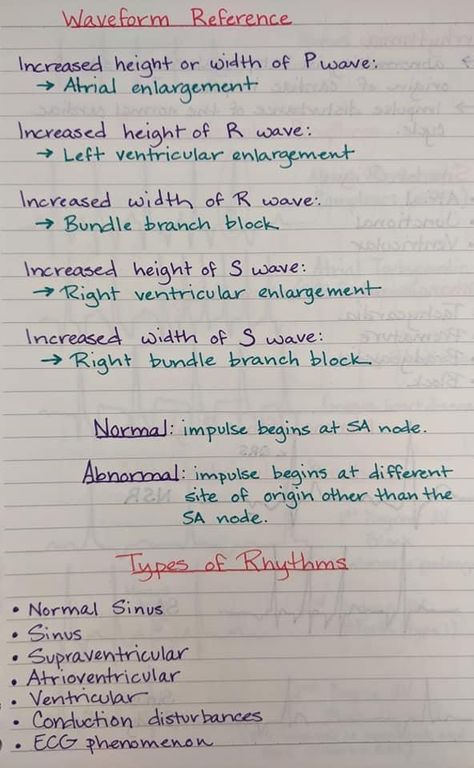 Waveform Reference
Increased height or width of P wave:
→ Atrial enlargement
Increased height of R wave:
→ Left ventricular enlargement
Increased width of R wave:
→ Bundle branch block
Increased height of S wave:
→ Right ventricular enlargement
Increased width of S wave:
→ Right bundle branch block
Normal: impulse begins at SA node.
Abnormal: impulse begins at different
site of origin other than the
SA node.
Types of Rhythms
• Normal Sinus
• Sinus
• Supraventricular
• Atrioventricular
• Ventricular
• Conduction disturbances
• ECG phenomenon